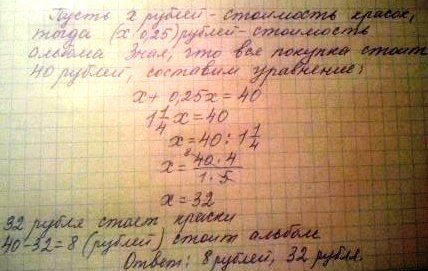 Пусть x рублей - стоимость красок,
тогда (x·0,25) рублей - стоимость
альбома Зная, что вся покупка стоит
40 рублей, составим уравнение:
x + 0,25x = 40
1 1/4 x = 40
x = 40 : 1 1/4
x = 40·4 / 1·5
x = 32
32 рубля стоят краски
40-32=8 (рублей) стоит альбом
Ответ: 8 рублей, 32 рубля.